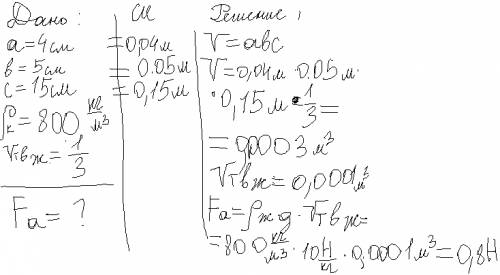 Дано:
a=4см
в=5см
с=15см
ρк=800 кг/м³
Vтвж=1/3
Fa=?
СИ
=0,04м
=0.05м
=0,15м
Решение:
V=aвc
V=0,04м·0.05м·
·0,15м·1/3=
=0,0003м³
Vтвж=0,0001м³
Fa=ρжg·Vтвж=
=800кг/м³·10Н/кг·0,0001м³=0,8Н